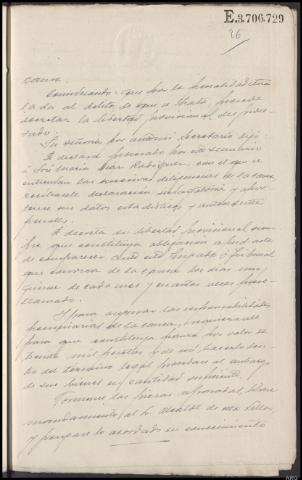 E.3.706.729
26
causa.
Considerando: que por la penalidad
al delito de que se trata, procede
decretar la libertad provisional del
Su Señoría por ante mí Secretario dijo
Se declara procesado por este sumario
á José María Díaz Rodríguez, con el que se
entenderán las sucesivas diligencias de la causa,
recíbasele declaración indagatoria y
sus datos estadísticos y antecedentes
penales.
Se decreta su libertad provisional
que constituya obligación apud acta
de comparecer ante este Juzgado ó Tribunal
que conozca de la causa los días uno y
quince de cada mes y cuantas veces fuere
llamado.
Y para asegurar las responsabilidades
pecuniarias de la causa, requiérasele
para que constituya fianza por valor de
mil pesetas y de no hacerlo
del término legal procédase al embargo
de sus bienes en cantidad suficiente.
Fórmense las piezas líbrese
mandamiento al Sr. Alcalde de esta
y póngase lo acordado en conocimiento